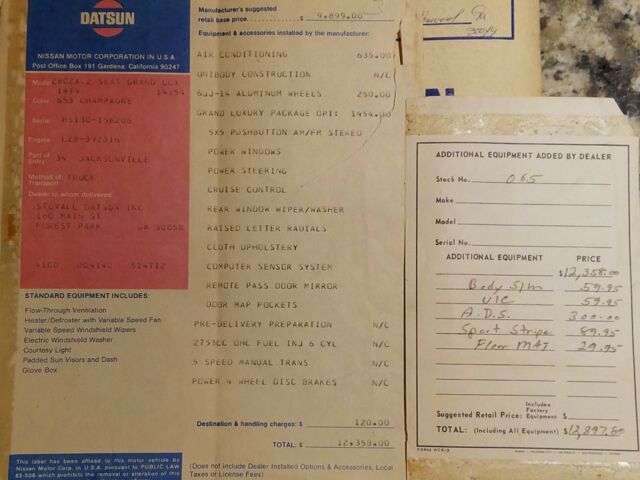 DATSUN
NISSAN MOTOR CORPORATION IN U.S.A
Post Office Box 191 Gardena, California 90247
Model 280ZX 2 SEAT GRAND LUX
1979 14154
Color 653 CHAMPAGNE
Serial HS130-158206
Engine L28-392316
Part of Entry 34 JACKSONVILLE
Method of Transport TRUCK
Dealer to whom delivered
STOVALL DATSUN INC
160 MAIN ST
FOREST PARK GA 30050
STANDARD EQUIPMENT INCLUDES:
Flow-Through Ventilation
Heater/Defroster with Variable Speed Fan
Variable Speed Windshield Wipers
Electric Windshield Washer
Courtesy Light
Padded Sun Visors and Dash
Glove Box
This label has been affixed to this motor vehicle by
Nissan Motor Corp. in U.S.A. pursuant to PUBLIC LAW
85-506 which prohibits the removal or alteration of this
Manufacturer's suggested
retail base price. $ 9,899.00
Equipment & accessories installed by the manufacturer:
AIR CONDITIONING 635.00
UNIBODY CONSTRUCTION N/C
6JJ-14 ALUMINUM WHEELS 250.00
GRAND LUXURY PACKAGE OPT: 1454.00
5X5 PUSHBUTTON AM/FM STEREO
POWER WINDOWS
POWER STEERING
CRUISE CONTROL
REAR WINDOW WIPER/WASHER
RAISED LETTER RADIALS
CLOTH UPHOLSTERY
COMPUTER SENSOR SYSTEM
REMOTE PASS DOOR MIRROR
DOOR MAP POCKETS
PRE-DELIVERY PREPARATION N/C
2753CC OHC FUEL INJ 6 CYL N/C
5 SPEED MANUAL TRANS N/C
POWER 4 WHEEL DISC BRAKES N/C
Destination & handling charges: $ 120.00
TOTAL: $ 12,358.00
(Does not include Dealer Installed Options & Accessories, Local
Taxes or License Fees)
Ga
30049
N
ADDITIONAL EQUIPMENT ADDED BY DEALER
Stock No. 065
Make
Model
Serial No.
ADDITIONAL EQUIPMENT PRICE
$12,358.00
Body S/m 59.95
U/C 59.95
A.D.S. 300.00
Sport Stripe 89.95
Floor MAT 29.95
Suggested Retail Price: Includes Factory Equipment $
TOTAL: (Including All Equipment) $12,897.80